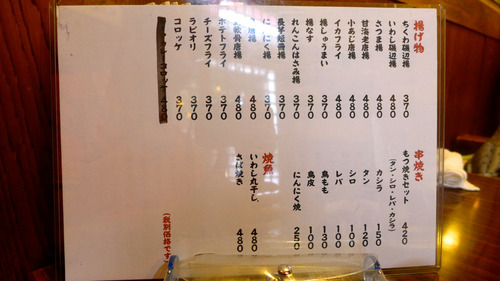 揚げ物
ちくわ磯辺揚 370
いわし磯辺揚 480
さつま揚 370
甘海老唐揚 480
小あじ唐揚 480
イカフライ 480
揚しゅうまい 370
揚なす 370
れんこんはさみ揚 480
長芋短冊揚 370
にんにく揚 370
480
軟骨唐揚 480
ポテトフライ 370
チーズフライ 370
ラビオリ 370
コロッケ 370
コロッケ 430
串焼き
もつ焼きセット 420
(タン・シロ・レバ・カシラ)
カシラ 150
タン 120
シロ 100
レバ 100
鳥もも 130
鳥皮 100
にんにく焼 250
焼魚
いわし丸干し 480
さば焼き 480
(税別価格です)